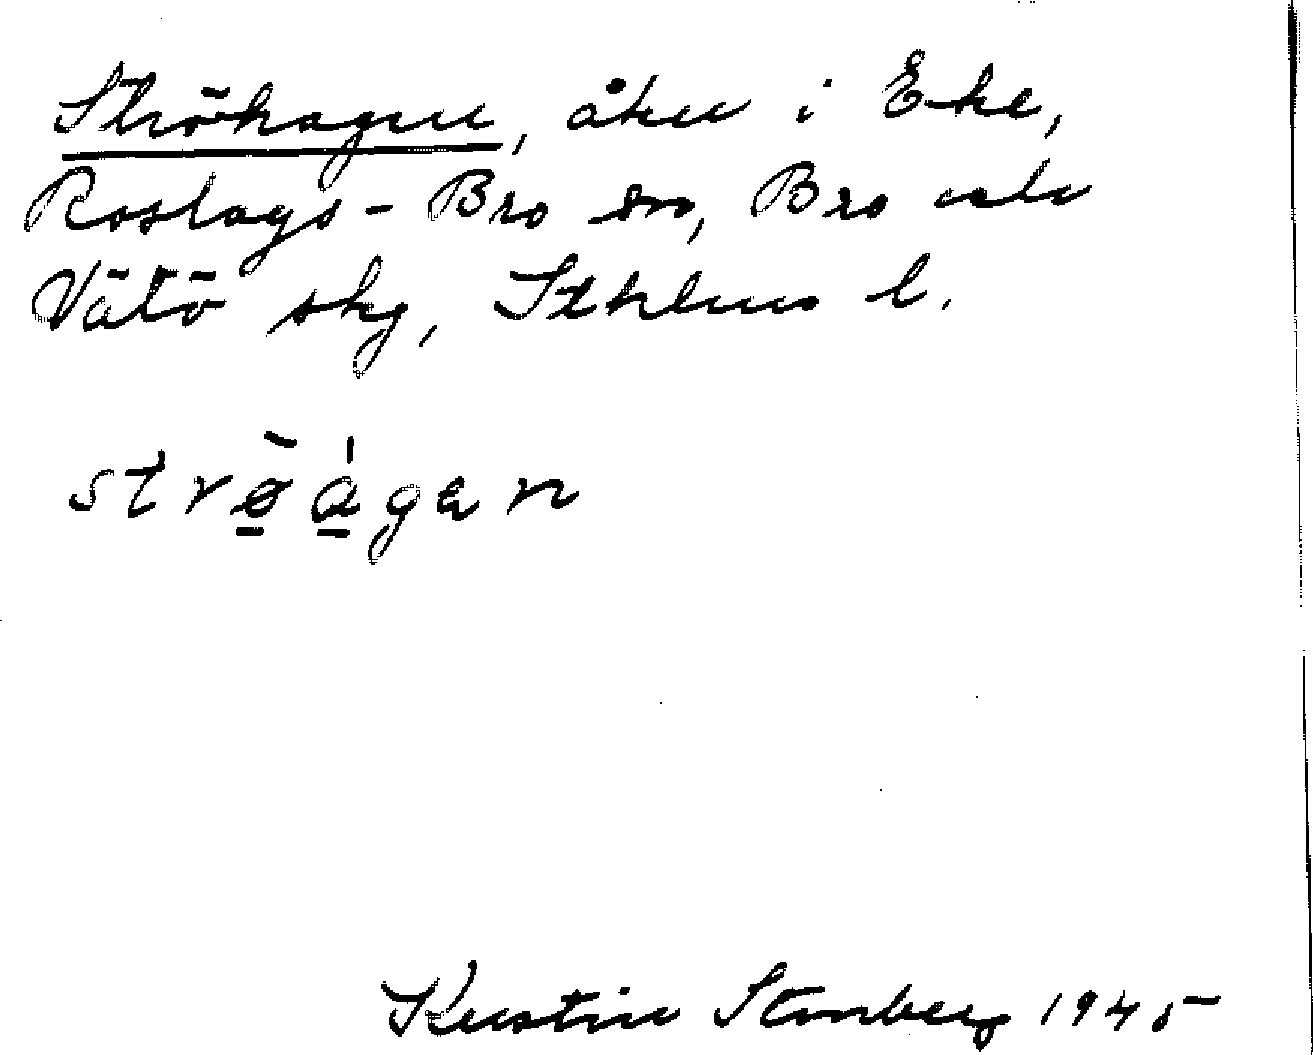 Ströhagen, åker i Eke,
Roslags-Bro sn, Bro och
Vätö skg, Sthlms l.
strø̀ ágan
Kerstin Stenberg 1945